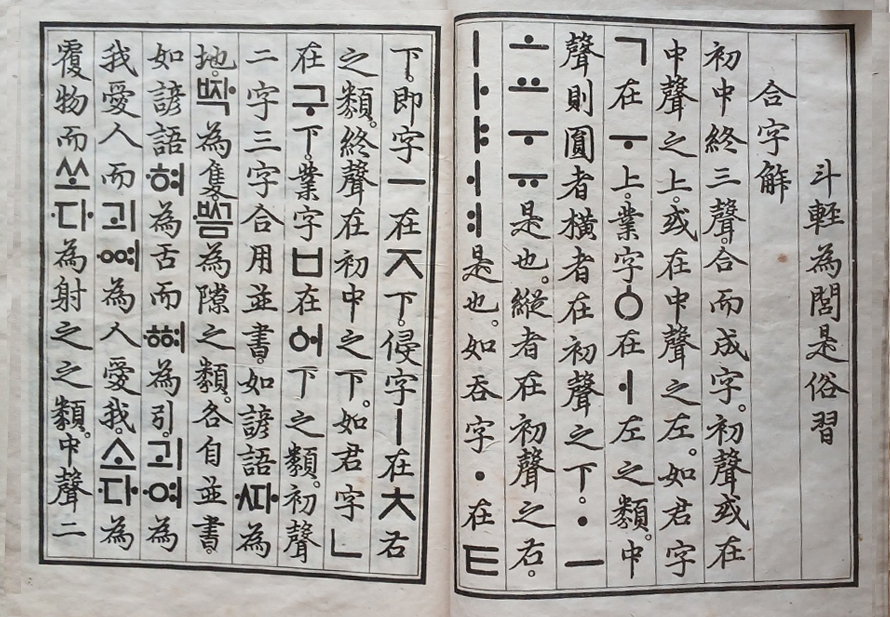 斗輕為閭是俗習
合字解
初中終三聲。合而成字。初聲或在
中聲之上。或在中聲之左。如君字
ㄱ在ㅜ上。業字ㆁ在ㅓ左之類。中
聲則圓者橫者在初聲之下。ㆍㅡ
ㅗㅛㅜㅠ是也。縱者在初聲之右。
ㅣㅏㅑㅓㅕ是也。如呑字ㆍ在ㅌ
下。即字ㅡ在ㅈ下。侵字ㅣ在ㅊ右
之類。終聲在初中之下。如君字ㄴ
在구下。業字ㅂ在ᅌᅥ下之類。初聲
二字三字合用並書。如諺語ᄯᅡ為
地。ᄧᅡᆨ為隻。ᄢᅳᆷ為隙之類。各自並書。
如諺語혀為舌而ᅘᅧ為引。괴여為
我愛人而괴ᅇᅧ為人愛我。소다為
覆物而쏘다為射之之類。中聲二